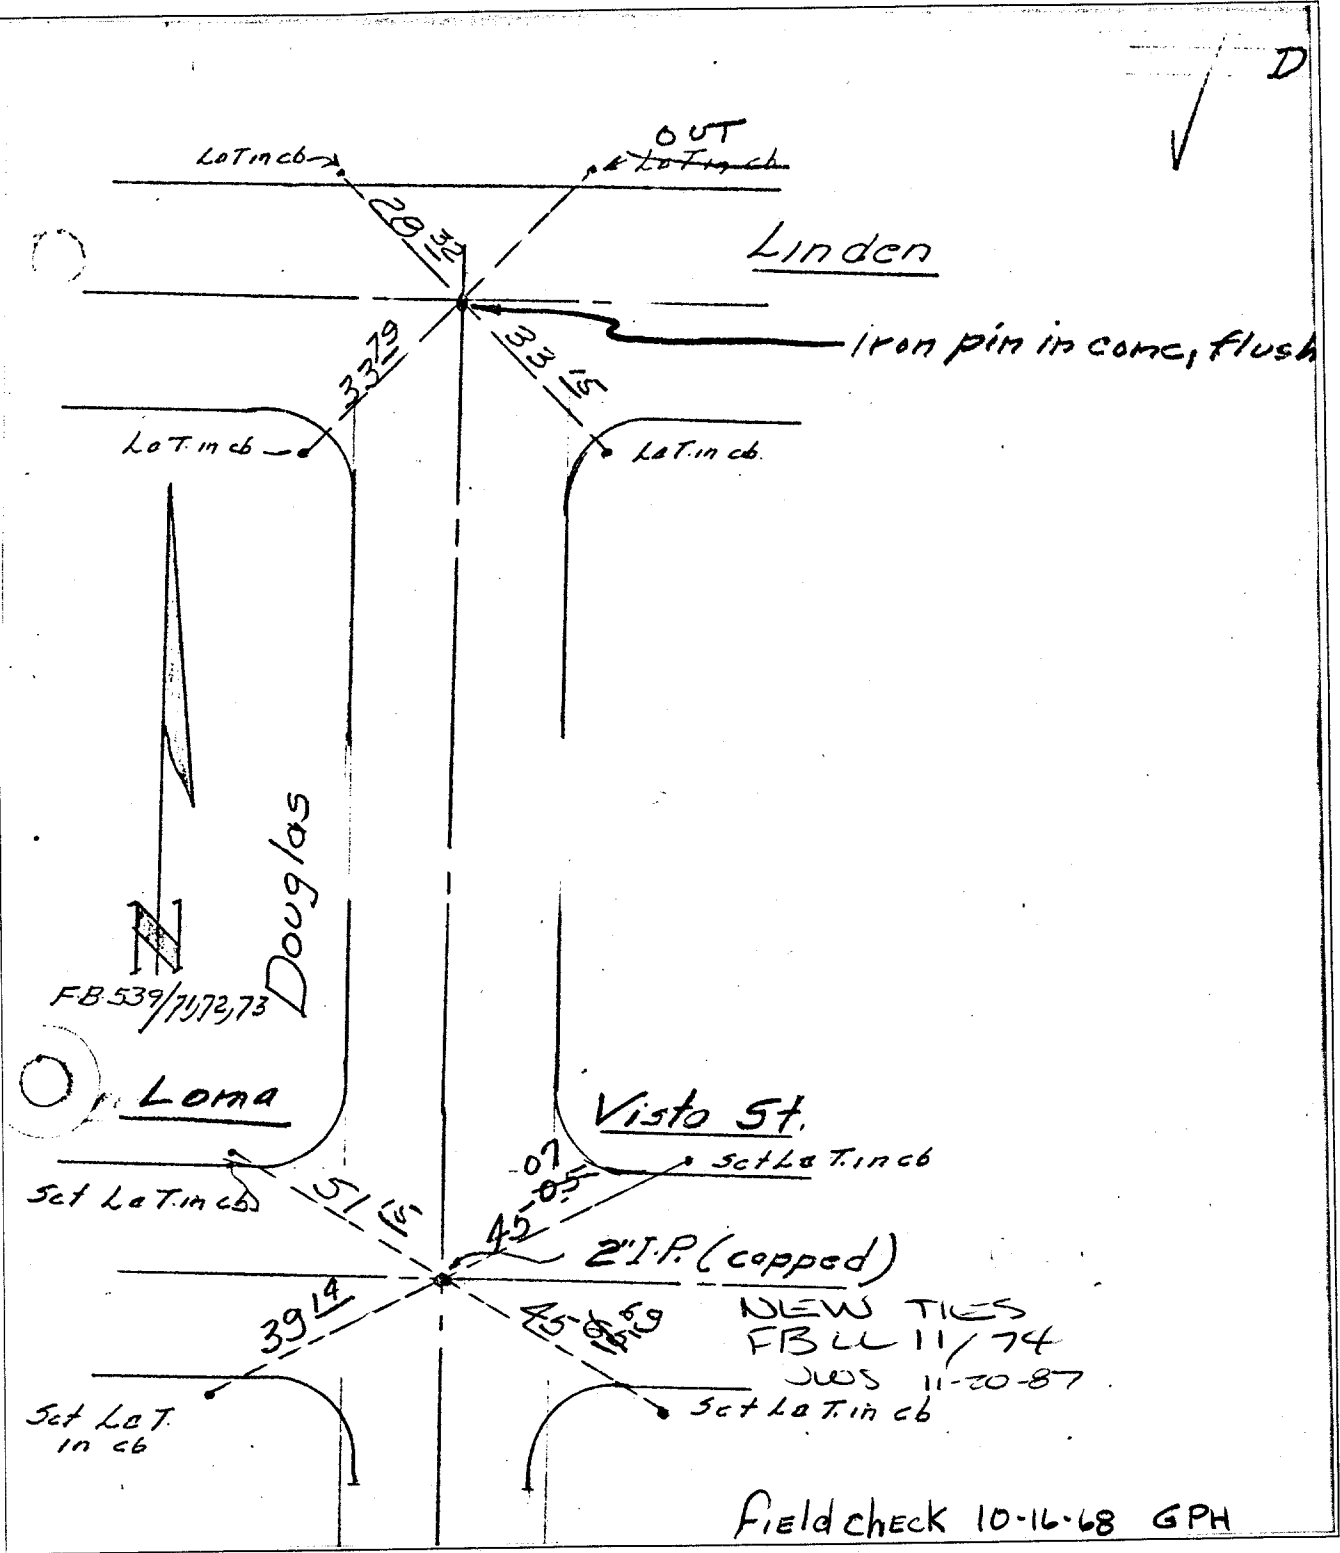 D
OUT
L&T in cb
L&T in cb
28 32
Linden
iron pin in conc, flush
33 79
33 15
L&T. in cb
L&T. in cb.
Douglas
N
FB 539/71,72,73
Loma
Visto St.
Set L&T. in cb
Set L&T. in cb
51 15
.07
.05
45
2" I.P. (capped)
39 14
45
NEW TIES
FB LL 11/74
JWS 11-20-87
Set L&T.
in cb
Set L&T. in cb
Field check 10-16-68 GPH